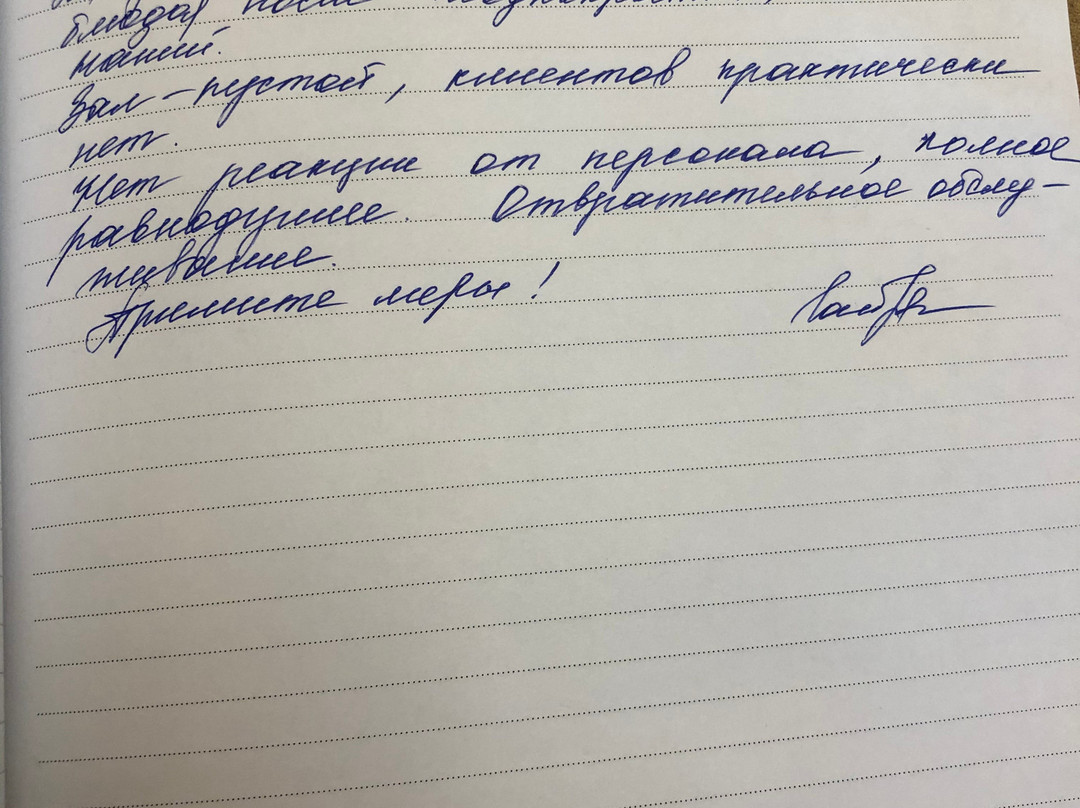 блюда после
маний.
Зал – пустой, клиентов практически
нет.
Нет реакции от персонала, полное
равнодушие. Отвратительное обслу-
живание.
Примите меры!